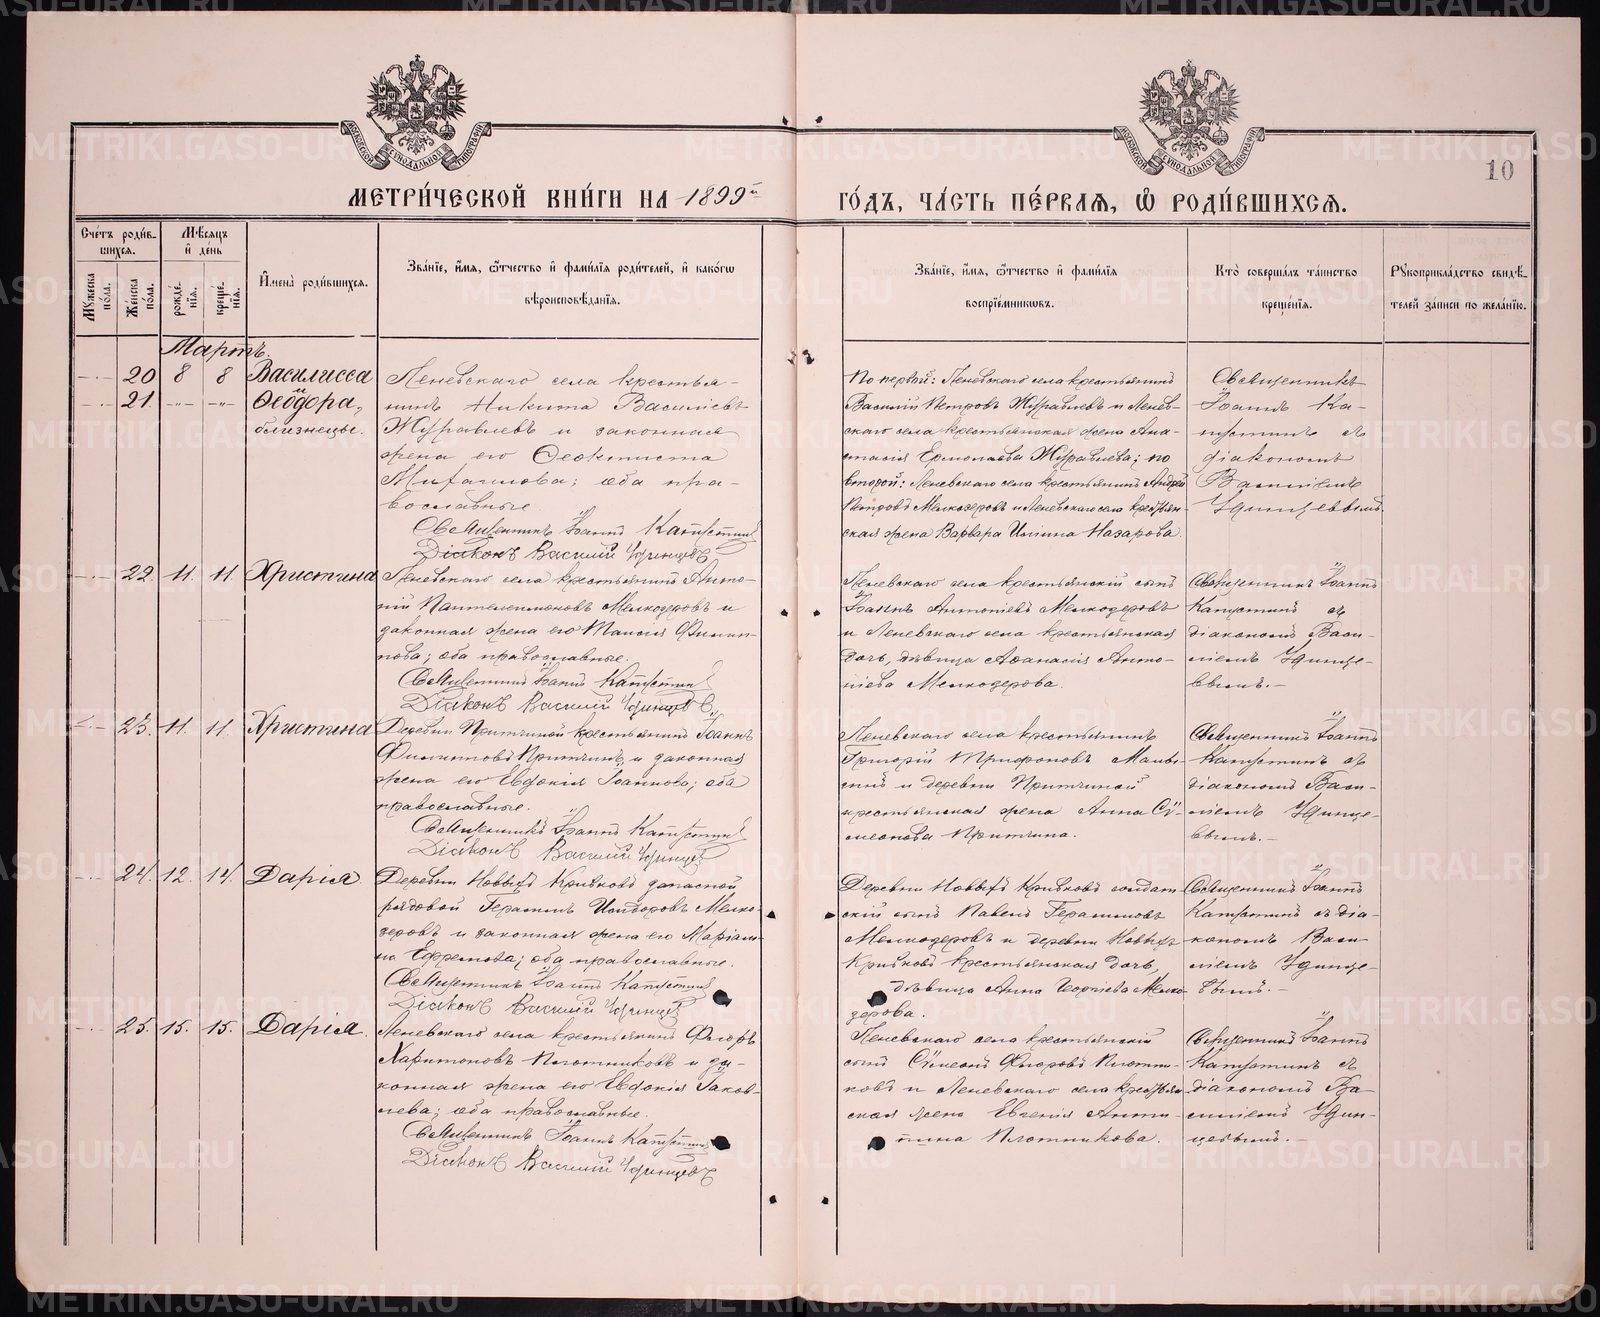 МЕТРИ́ЧЕСКОЙ КНИ́ГИ НА 1899й ГО́ДЪ, ЧА́СТЬ ПЕ́РВАЯ, Ѽ РОДИ́ВШИХСЯ.
10
Сче́тъ роди́в-
шихся.
Мѣ́сяцъ
и҆ де́нь
И҆мена̀ роди́вшихся.
Зва́нїе, и҆́мя, ѻ҆́тчество и҆ фами́лїя роди́телей, и҆ како́гѡ
вѣроисповѣ́данїя.
Мꙋ́жеска
по́ла.
Же́нска
по́ла.
рожде́-
нїя.
креще́-
нїя.
Зва́нїе, и҆́мя, ѻ҆́тчество и҆ фами́лїя
воспрїе́мниковъ.
Кто̀ соверша́лъ та́инство
креще́нїя.
Рꙋкоприкла́дство свидѣ́-
телей за́писи по жела́нїю.
Мартъ.
20 8 8 Василисса
и
21 Ѳеодора,
близнецы.
Леневскаго села крестья-
нинъ Никита Василіевъ
Журавлевъ и законная
жена его Ѳеоктиста
Михаилова; оба пра-
вославные.
Священникъ Іоаннъ Капустинъ
Діаконъ Василій Удинцевъ
По первой: Леневскаго села крестьянинъ
Василій Петровъ Журавлевъ и Ленев-
скаго села крестьянская жена Ана-
стасія Ермолаева Журавлева; по
второй: Леневскаго села крестьянинъ Андрей
Петровъ Мелкозеровъ и Леневскаго села крестьян-
ская жена Варвара Илiина Назарова.
Священникъ
Іоаннъ Ка-
пустинъ съ
діакономъ
Василіемъ
Удинцевымъ.
22 11 11 Христина
Леневскаго села крестьянинъ Анто-
ній Пантелеимоновъ Мелкозеровъ и
законная жена его Таисія Филип-
пова; оба православные.
Священникъ Іоаннъ Капустинъ
Діаконъ Василій Удинцевъ
Леневскаго села крестьянскій сынъ
Іоаннъ Антоніевъ Мелкозеровъ
и Леневскаго села крестьянская
дочь, дѣвица Аѳанасія Анто-
ніева Мелкозерова.
Священникъ Іоаннъ
Капустинъ съ
діакономъ Васи-
ліемъ Удинце-
вымъ.
23 11 11 Христина
Деревни Притчиной крестьянинъ Іоаннъ
Филипповъ Притчинъ и законная
жена его Евдокія Іоаннова; оба
православные.
Священникъ Іоаннъ Капустинъ
Діаконъ Василій Удинцевъ
Леневскаго села крестьянинъ
Григорій Трифоновъ
и деревни Притчиной
крестьянская жена Анна Сѵ-
меонова Притчина.
Священникъ Іоаннъ
Капустинъ съ
діакономъ Васи-
ліемъ Удинце-
вымъ.
24 12 14 Дарія
Деревни Новыхъ Кривковъ запасной
рядовой Герасимъ Исидоровъ Мелко-
зеровъ и законная жена его Маріам-
на Ефремова; оба православные.
Священникъ Іоаннъ Капустинъ
Діаконъ Василій Удинцевъ
Деревни Новыхъ Кривковъ солдат-
скій сынъ Павелъ Герасимовъ
Мелкозеровъ и деревни Новыхъ
Кривковъ крестьянская дочь,
дѣвица Анна Георгіева Мелко-
зерова.
Священникъ Іоаннъ
Капустинъ съ діа-
кономъ Васи-
ліемъ Удинце-
вымъ.
25 15 15 Дарія
Леневскаго села крестьянинъ Ѳеодоръ
Харитоновъ Плотниковъ и за-
конная жена его Евдокія Іаков-
лева; оба православные.
Священникъ Іоаннъ Капустинъ
Діаконъ Василій Удинцевъ
Леневскаго села крестьянскій
сынъ Сѵмеонъ Ѳеодоровъ Плотни-
ковъ и Леневскаго села крестьян-
ская жена Евгенія Анти-
пина Плотникова.
Священникъ Іоаннъ
Капустинъ съ
діакономъ Ва-
силіемъ Удин-
цевымъ.
METRIKI.GASO-URAL.RU